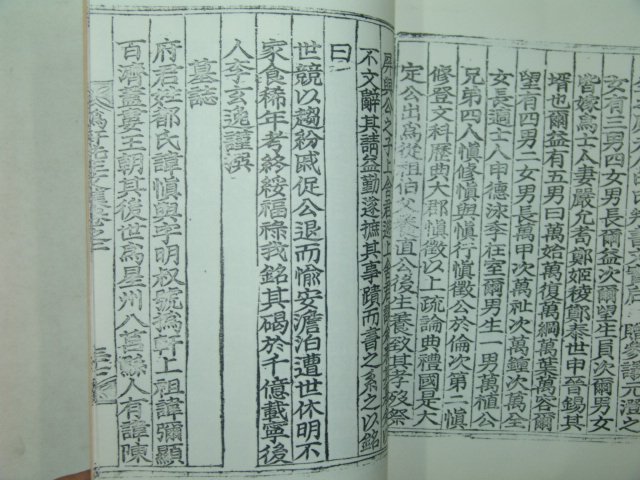 安有二女男長爾益次爾望生員次爾男女
皆嫁爲士人妻嚴允耉鄭姬稜鄭泰世申晉錫其
壻也爾益有五男曰萬始萬復萬綱萬葉萬容爾
望有四男二女男長萬甲次萬祉次萬鐘次萬全
女長適士人申德洙季在室爾男生一男萬植公
兄弟四人愼修愼與愼行愼徵公於倫次第二愼
修登文科歷典大郡愼徵以上疏論典禮國是大
定公出爲從祖伯父 直公後生養致其孝歿祭
不文辭其請益勤遂摭其事蹟而書之系之以銘
曰
世競以趨紛戚促公退而愉安澹泊遭世休明不
家食稀年考終綏福祿我銘其碣於千億載寧後
人李玄逸謹撰
墓誌
府君姓都氏諱愼與字明叔號 軒上祖諱彌顯
百濟蓋婁王朝其後世爲星州八莒縣人有諱陳